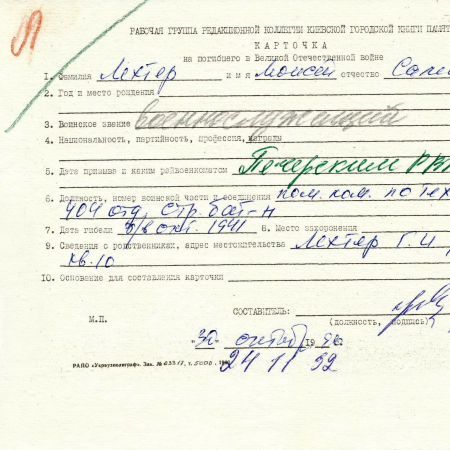 Л
РАБОЧАЯ ГРУППА РЕДАКЦИОННОЙ КОЛЛЕГИИ КИЕВСКОЙ ГОРОДСКОЙ КНИГИ ПАМЯТ
КАРТОЧКА
на погибшего в Великой Отечественной войне
1. Фамилия Лехтер имя Моисей отчество
2. Год и место рождения
3. Воинское звание военнослужащий
4. Национальность, партийность, профессия, награды
5. Дата призыва и каким райвоенкоматом Печерским РВК
6. Должность, номер воинской части и соединения пом. ком. по тех
404 отд. стр. бат-н
7. Дата гибели в окт. 1941 8. Место захоронения
9. Сведения о родственниках, адрес местожительства Лехтер Г. И
кв. 10
10. Основание для составления карточки
СОСТАВИТЕЛЬ:
М.П. (должность, подпись)
"30" октября 1990
РАПО «Укрвузполиграф». Зак. № 0331, т. 5000.
24 11 92